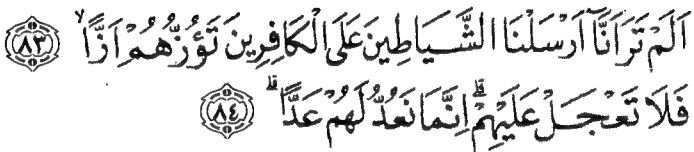 اَلَمْ تَرَ اَنَّٓا اَرْسَلْنَا الشَّيَاطِينَ عَلَى الْكَافِرِينَ تَؤُزُّهُمْ اَزًّاۙ ﴿٨٣﴾
فَلَا تَعْجَلْ عَلَيْهِمْۜ اِنَّمَا نَعُدُّ لَهُمْ عَدًّاۜ ﴿٨٤﴾